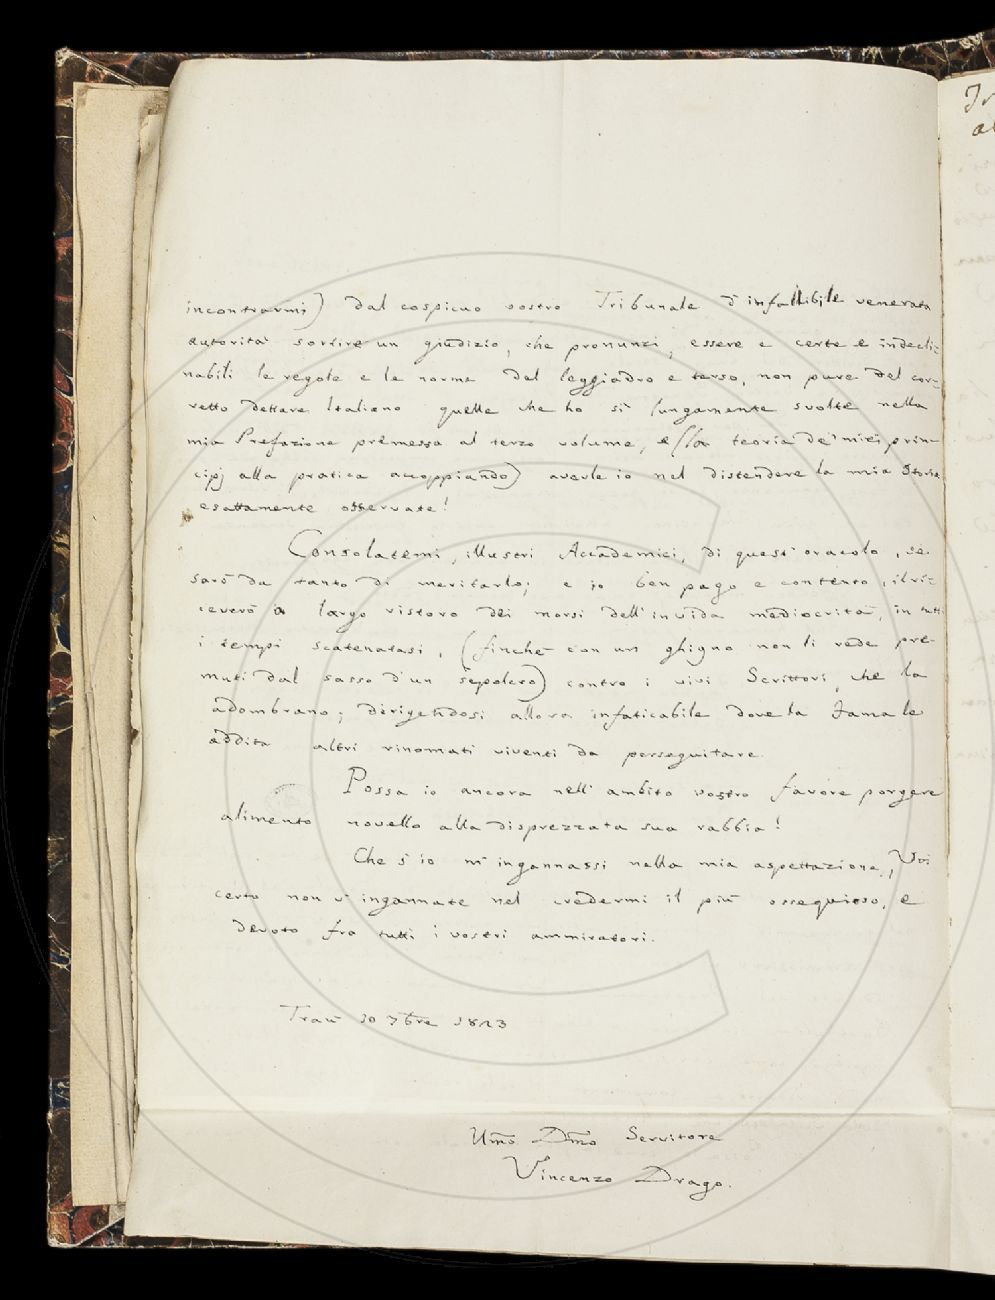 incontrarmi) dal cospicuo vostro Tribunale d'infallibile venerata
autorità sortire un giudizio, che pronunzi, essere e certe e indecli=
nabili le regole e le norme del leggiadro e terso, non pure del cor=
retto dettare Italiano quelle che ho sì lungamente svolte nella
mia Prefazione premessa al terzo volume, e (la teoria de' miei prin=
cipj alla pratica accoppiando) averle io nel distendere la mia Storia
esattamente osservate!
Consolatemi, illustri Accademici, di quest'oracolo, se
sarò da tanto di meritarlo; e io ben pago e contento, il ri=
ceverò a largo ristoro dei morsi dell'invida mediocrità, in tutti
i tempi scatenatasi, (finchè con un ghigno non li vede pre=
muti dal sasso d'un sepolcro) contro i vivi Scrittori, che la
adombrano; dirigendosi allora infaticabile dove la Fama le
addita altri rinomati viventi da perseguitare.
Possa io ancora nell'ambito vostro favore porgere
alimento novello alla disprezzata sua rabbia!
Che s'io m'ingannassi nella mia aspettazione, Voi
certo non v'ingannate nel credermi il più ossequioso, e
devoto fra tutti i vostri ammiratori.
Traù 30 7bre 1823
Umo Dmo Servitore
Vincenzo Drago.